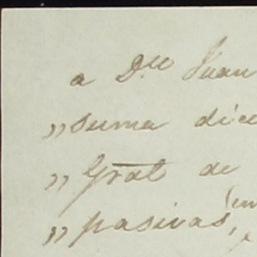 a Dn Juan
" suma
" Grāt de
" pasivas,